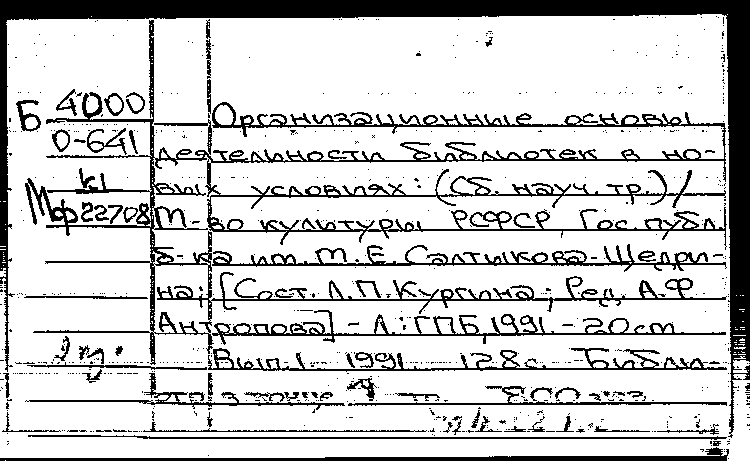 Б 4000
О-641
к1
Мф22708
Организационные основы
деятельности библиотек в но-
вых условиях: (Сб. науч. тр.) /
М-во культуры РСФСР, Гос. публ.
б-ка им. М. Е. Салтыкова-Щедри-
на; [Сост. Л.П. Кургина; Ред. А.Ф.
Антропова] - Л.: ГПБ, 1991. - 20см
Вып.1 - 1991. 128с. Библи-
огр. в конце 800 экз.